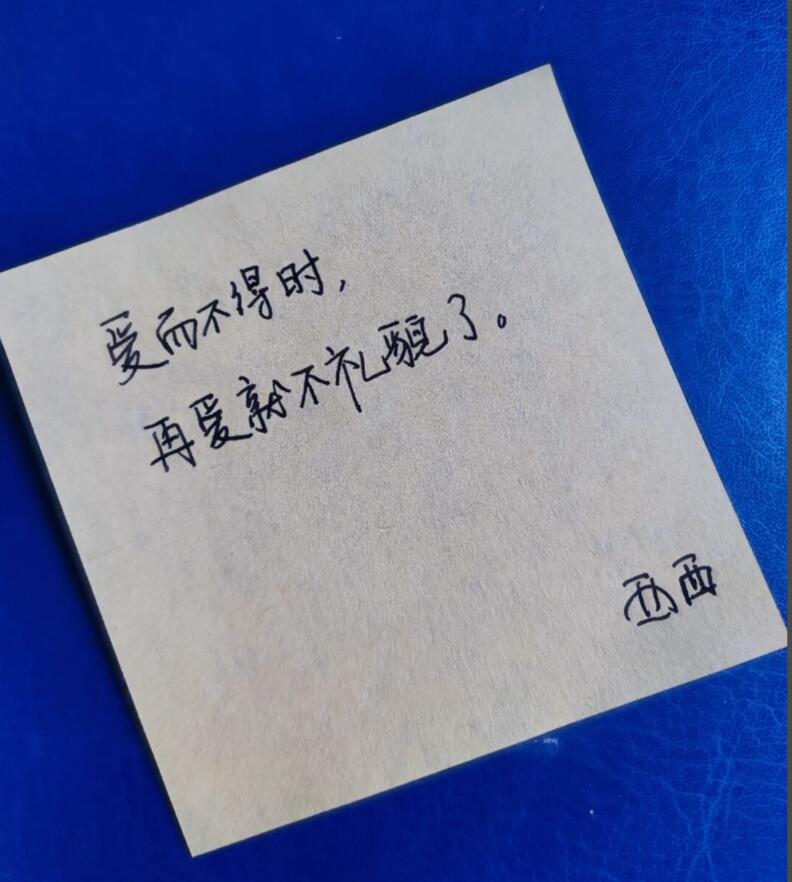 爱而不得时,
再爱就不礼貌了。
西西